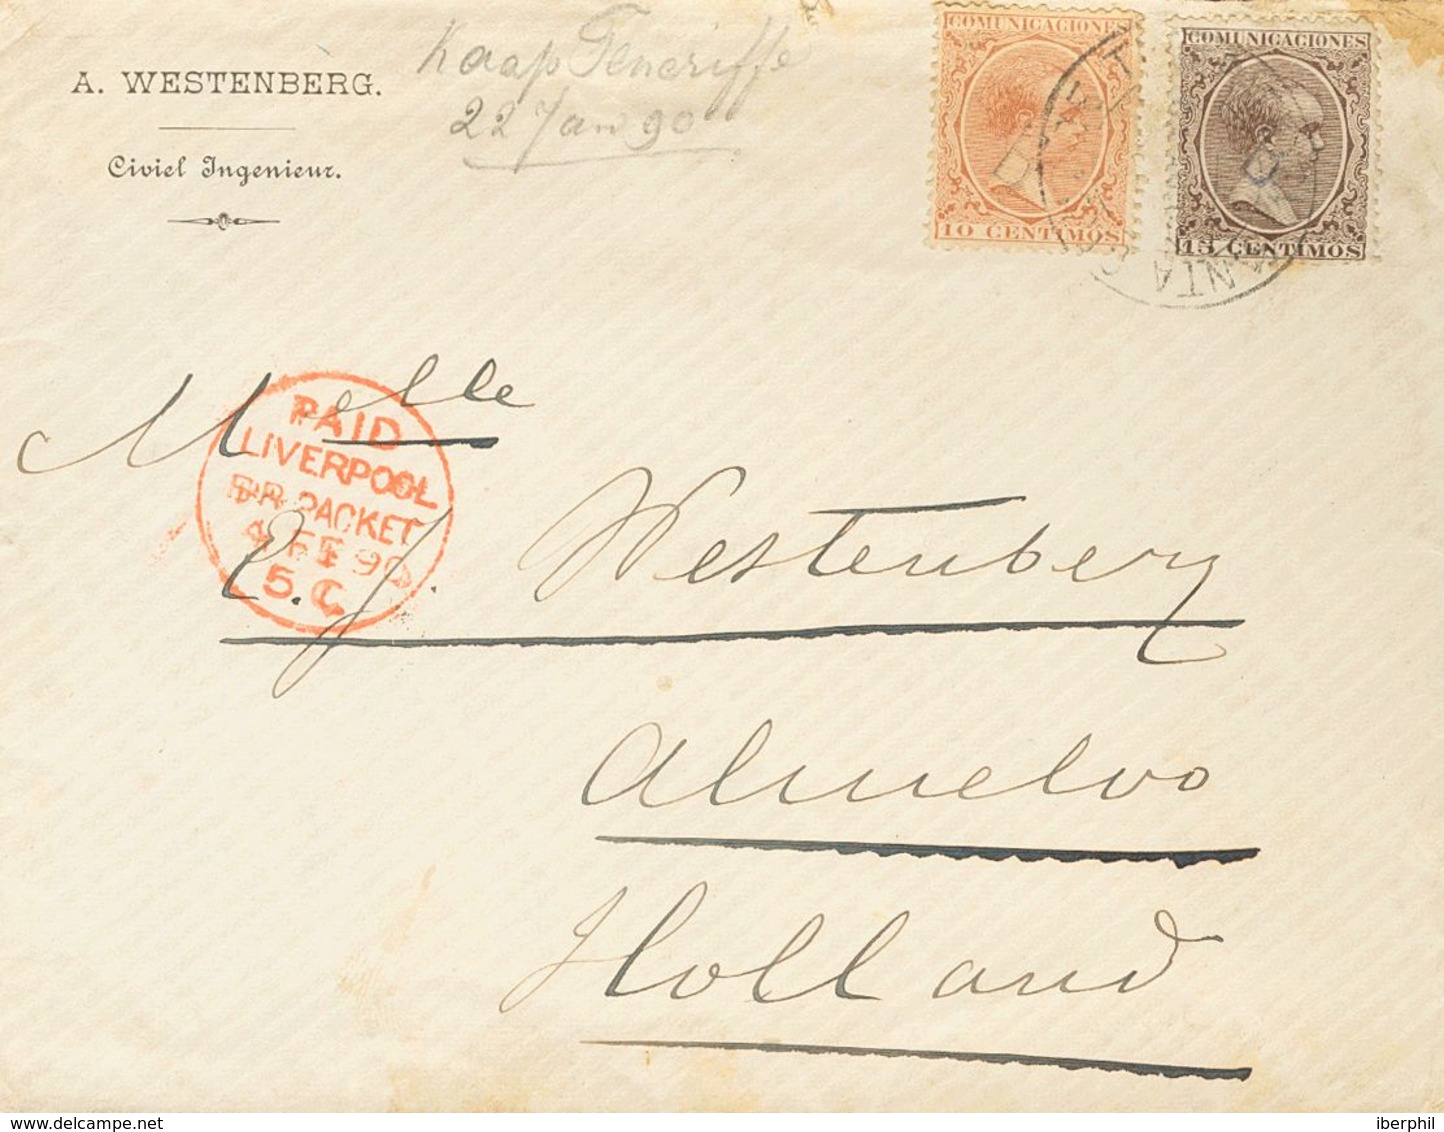 A. WESTENBERG.
Civiel Ingenieur.
Kaap Teneriffe
22 Jan 90
COMUNICACIONES
10 CENTIMOS
COMUNICACIONES
15 CENTIMOS
SANTA
PAID
LIVERPOOL
BR. PACKET
4 FE 90
5. C
Melle
E. J. Westenberg
Almelo
Holland
delcampe.net
iberphil